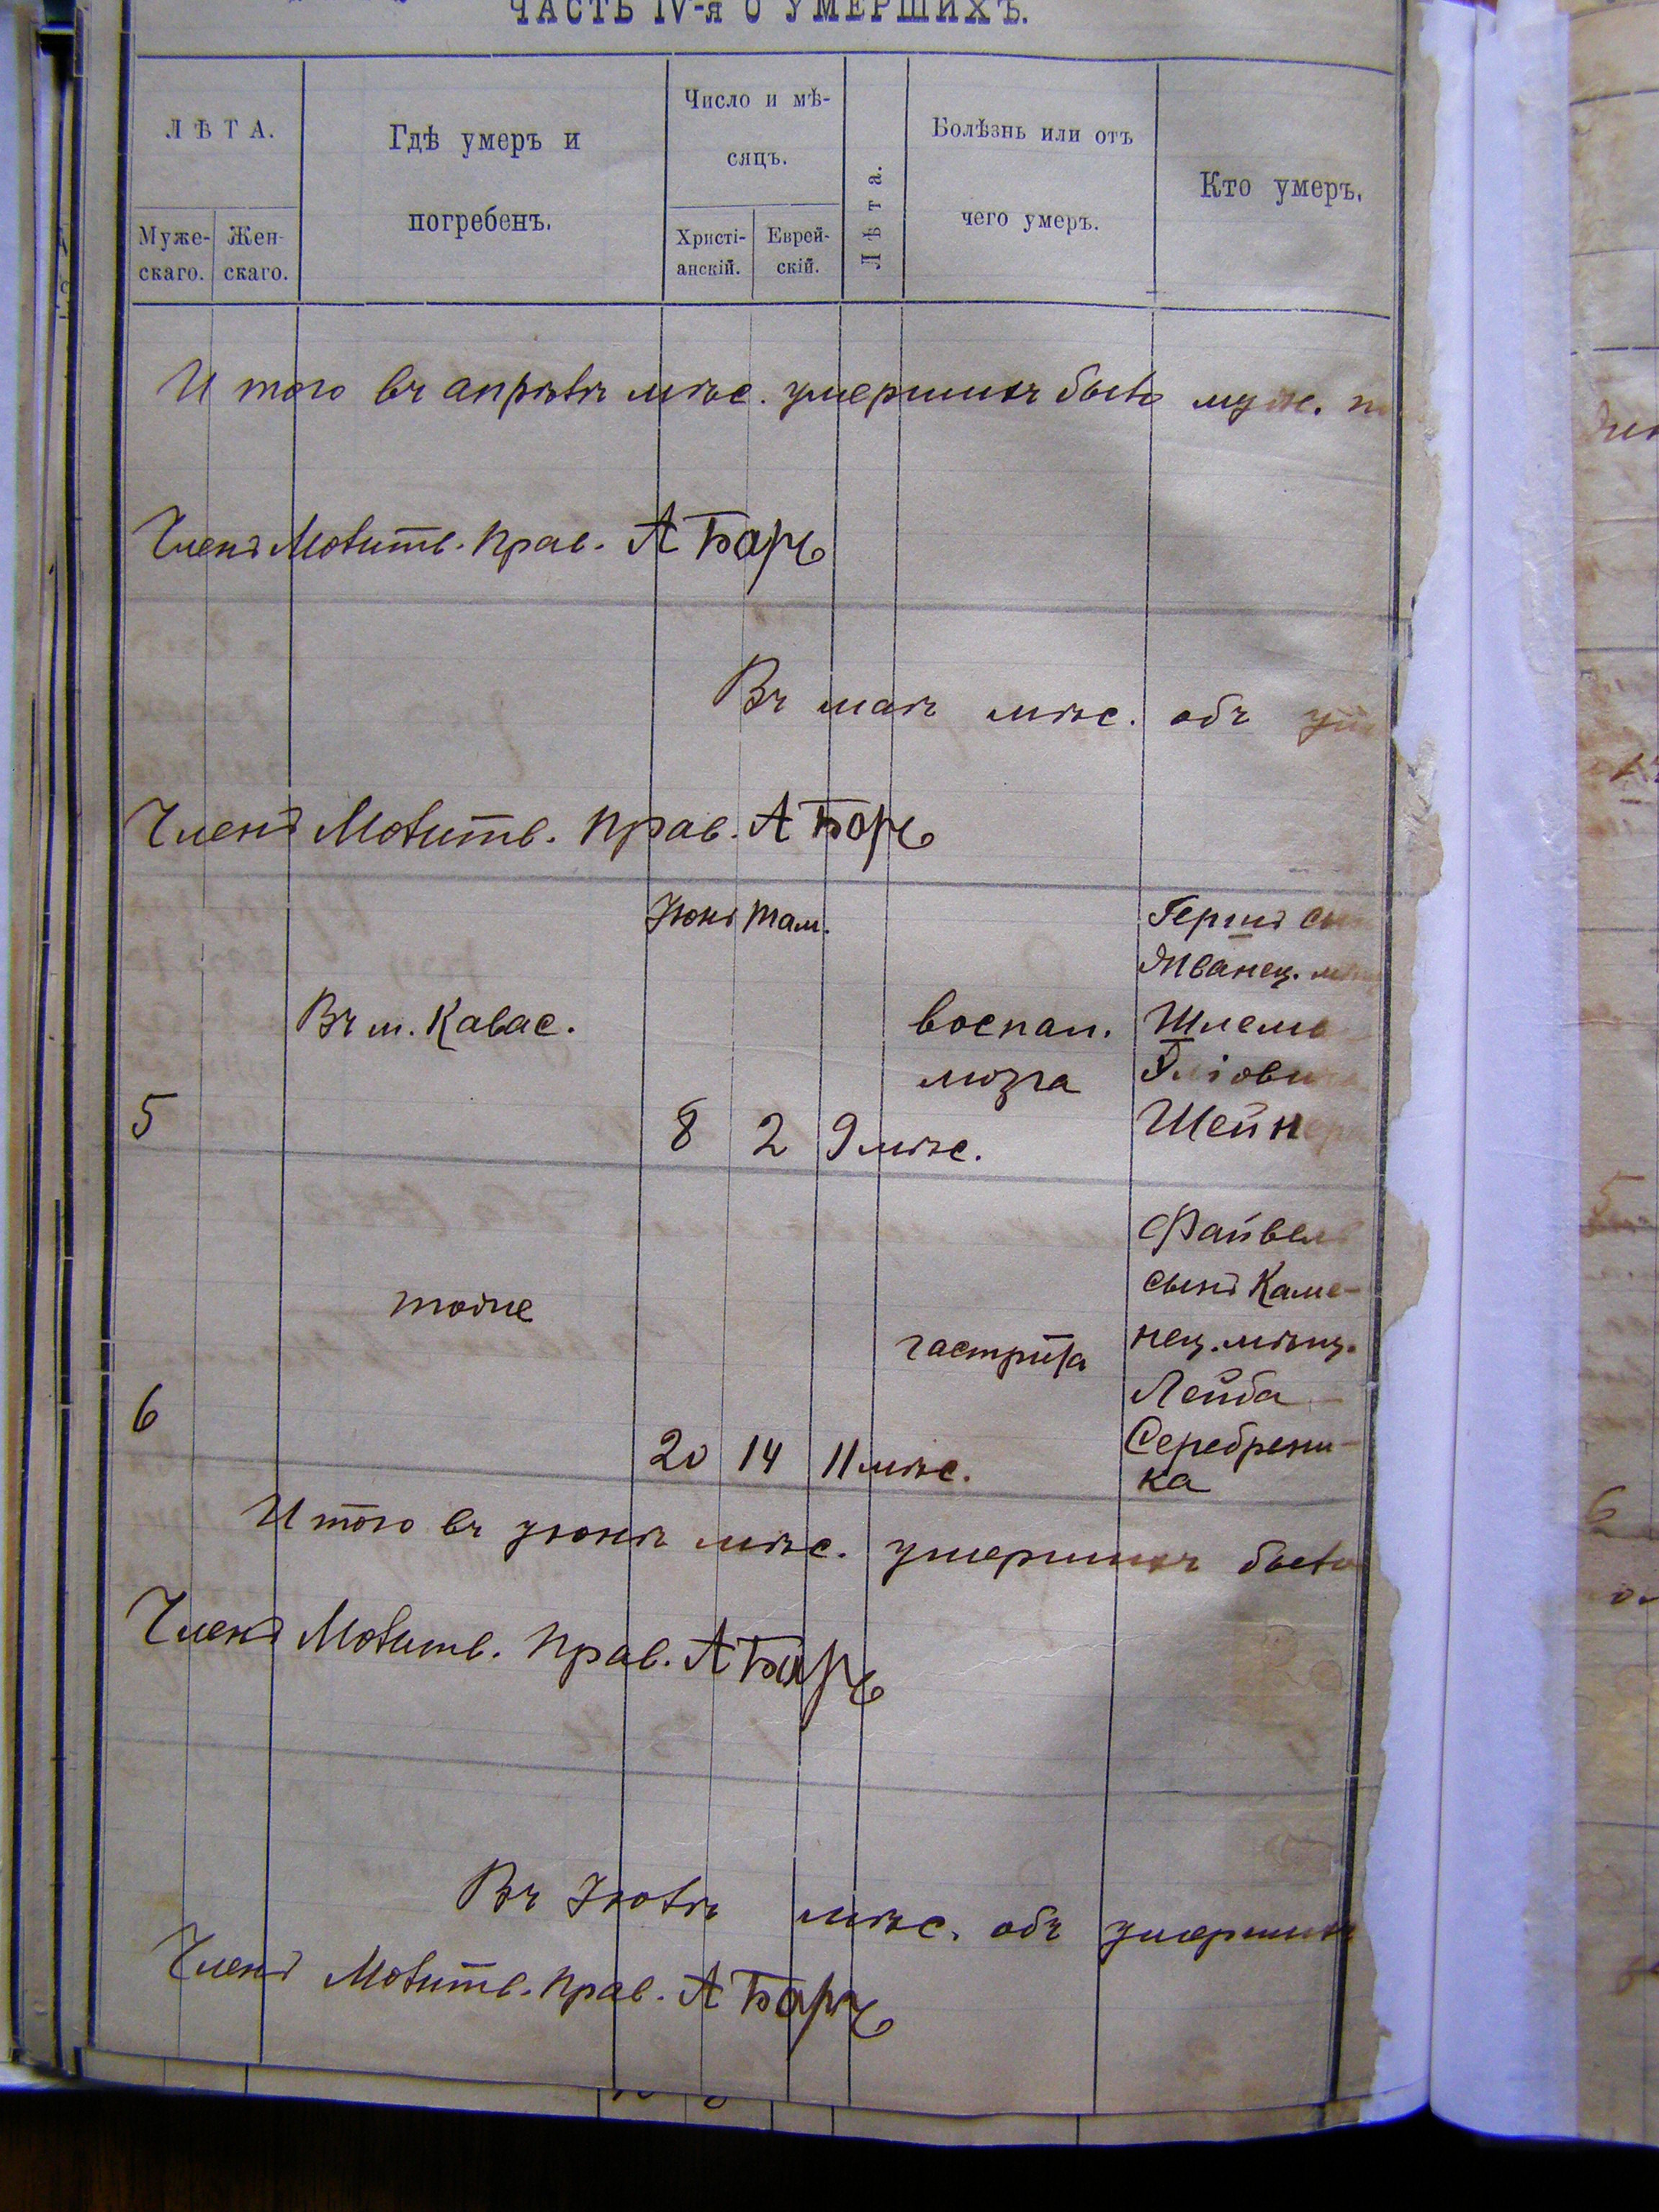 ЧАСТЬ IV-я О УМЕРШИХЪ.
ЛѢТА.
Муже-
скаго.
Жен-
скаго.
Гдѣ умеръ и
погребенъ.
Число и мѣ-
сяцъ.
Христі-
анскій.
Еврей-
скій.
Лѣта.
Болѣзнь или отъ
чего умеръ.
Кто умеръ.
Итого въ апрѣлѣ мѣс. умершихъ было муж.
Членъ Молитв. Прав. А Баръ
Въ маѣ мѣс. объ
Членъ Молитв. Прав. А Баръ
Іюнь Там.
Гершъ
Жванец.
Въ м. Калюс.
воспал.
Шлема
мозга
Шейнера
5
8 2 9 мѣс.
Файвель
сынъ Каме-
тоже
гастрита
нец. мѣщ.
Лейба
6
20 14 11 мѣс.
Серебрени-
ка
Итого въ іюнѣ мѣс. умершихъ было
Членъ Молитв. Прав. А Баръ
Въ Іюлѣ мѣс. объ умершихъ
Членъ Молитв. Прав. А Баръ